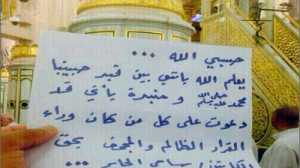 حسبي الله ...
يعلم الله بأنني بين قبر حبيبنا
محمد ﷺ و منبره بأني قد
دعوت على كل من كان وراء
القرار الظالم والمجحف بحق